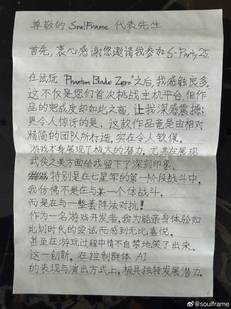 尊敬的 SoulFrame 代表先生
首先，衷心感谢您邀请我参加 S-Party 25
在试玩 "Phantom Blade Zero" 之后，我感触良多。
这不仅是您们首次挑战主机平台，但作
品的完成度却如此之高，让我深感震撼！
更令人惊讶的是，这款作品竟是由相对
精简的团队所打造，实在令人钦佩。
游戏本身展现了极大的潜力，尤其在展现
武侠之美方面给我留下了深刻印象。
特别是在七星军的第一阶段战斗中，
我仿佛不是在与某一个体战斗，
而是在与一整套阵法对抗！
作为一名游戏开发者，我为能亲身体验如
此划时代的尝试而感到无比喜悦，
甚至在游玩过程中情不自禁地笑了出来。
这一创新，在控制群体 AI
的表现与演出方式上，极具独特发展潜力。
@soulframe